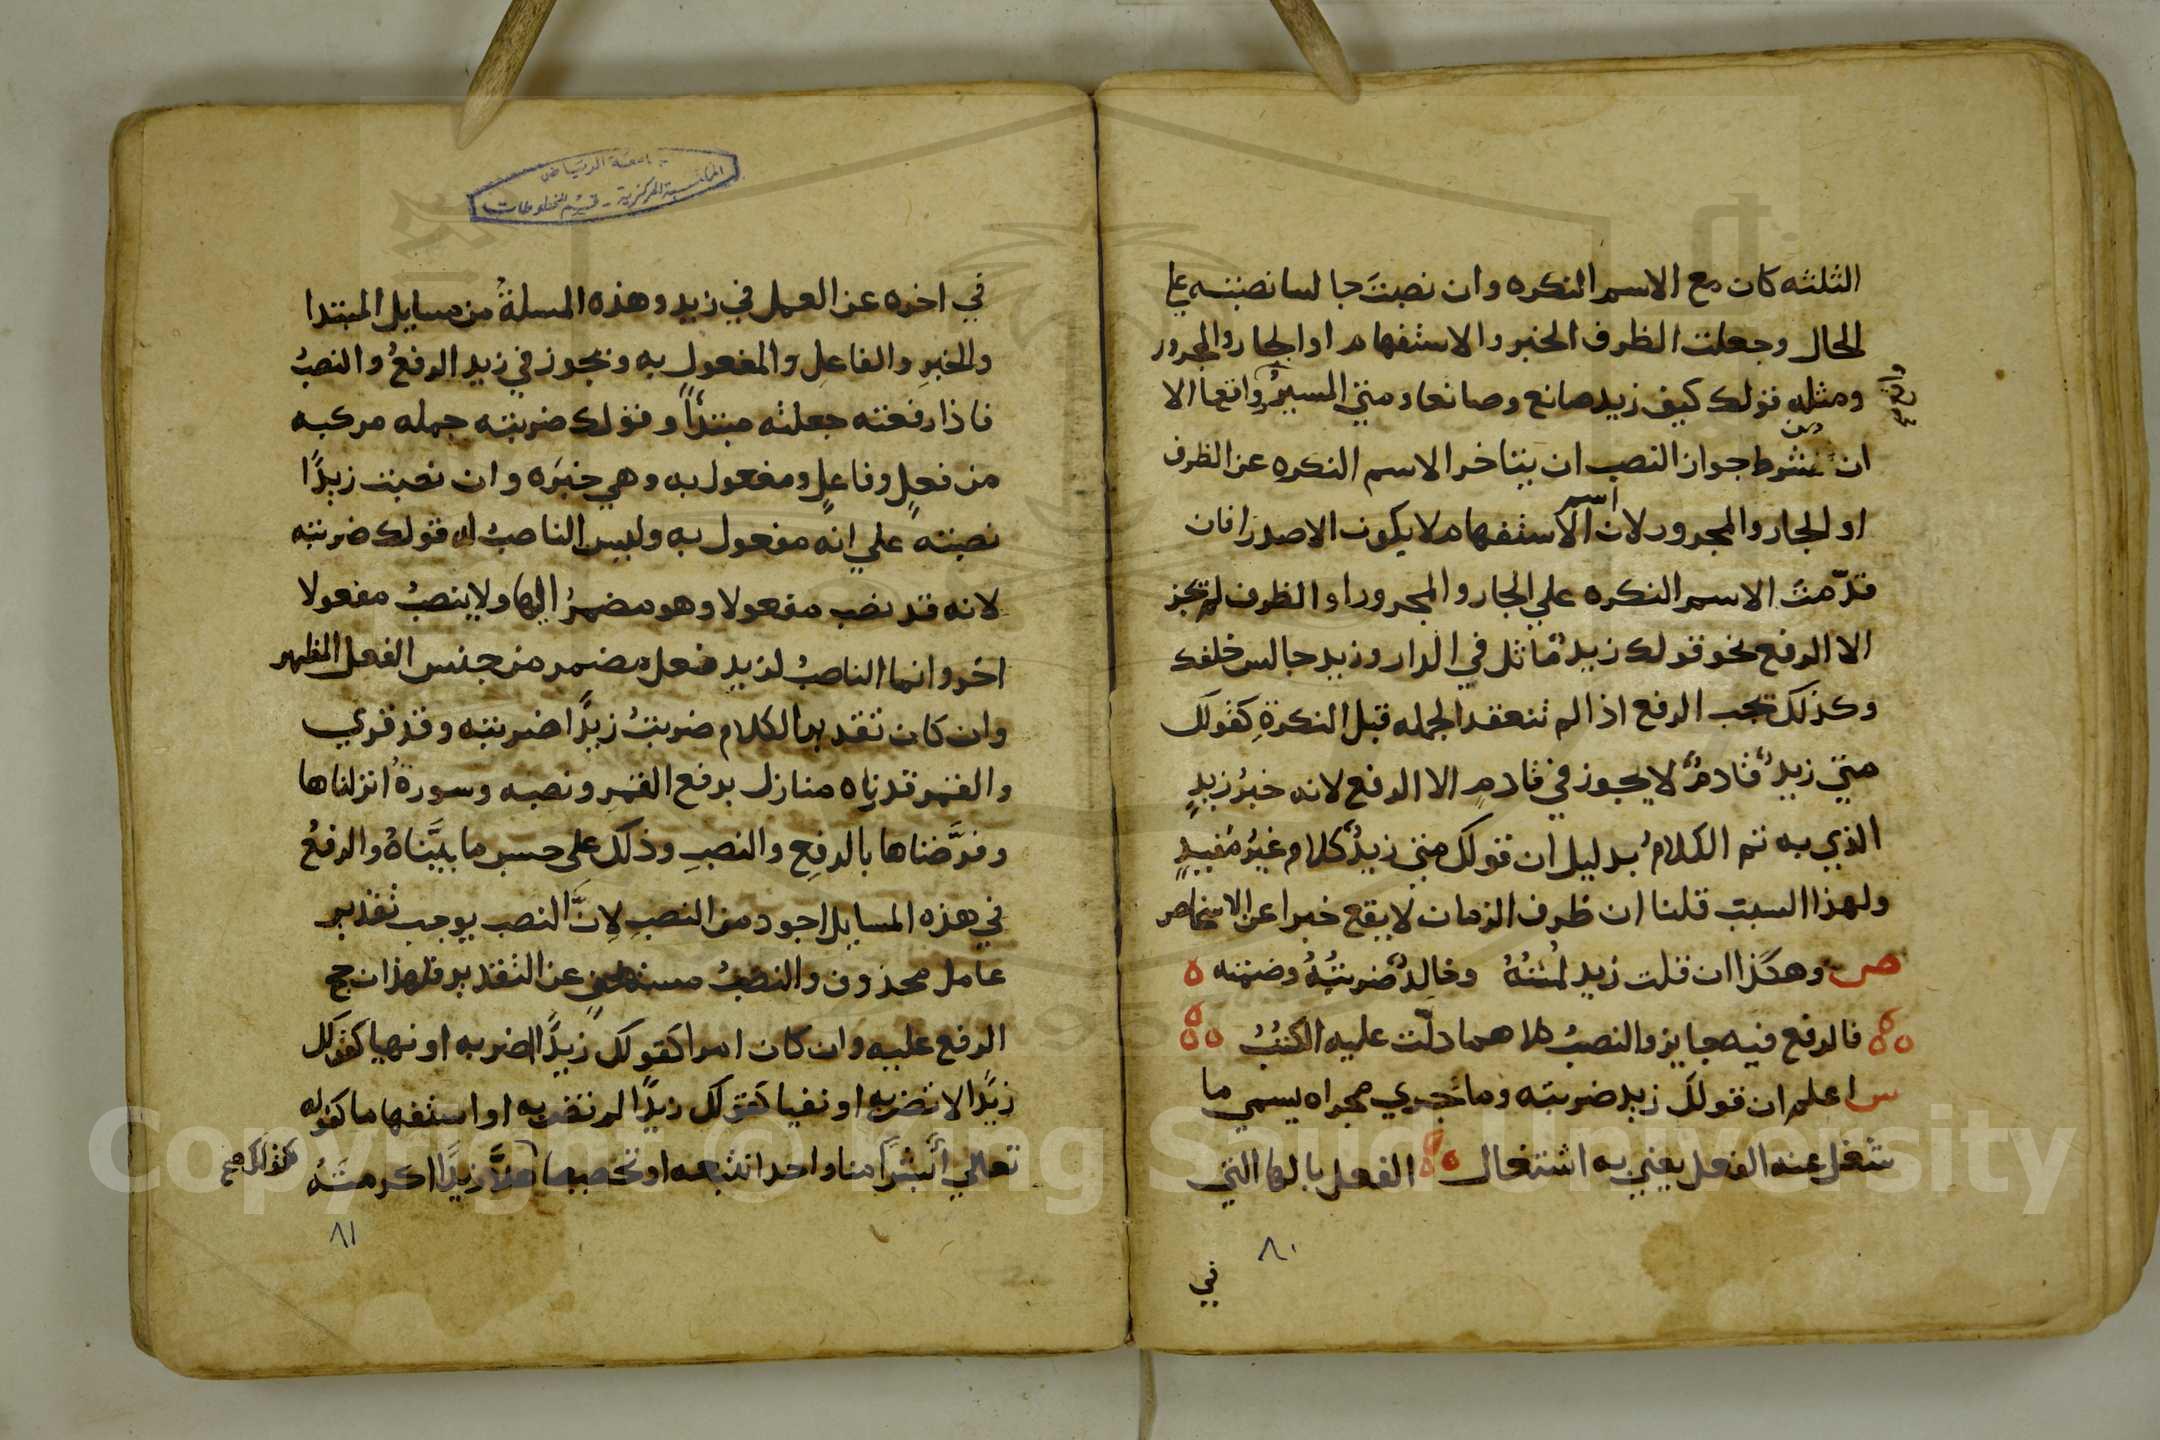 الثلثه كان مع الاسم النكره وان نصبتَ جالسا نصبته علي
الحال وجعلت الظرف الخبر والاستفهام او الجار والمجرور
ومثله قولك كيف زيد صانع وصانعا ومتي السيرُ واقعا الا
ان من شرط جواز النصب ان يتاخر الاسم النكره عن الظرف
او الجار والمجرور لان اسم الاستفهام لا يكون الا صدرا فان
قدّمت الاسم النكره علي الجار والمجرور او الظرف لم تجز
الا الرفع نحو قولك زيدٌ ماثل في الدار وزيد جالس خلفك
وكذلك تجب الرفع اذا لم تنعقد الجمله قبل النكرةِ كقولك
متي زيدٌ قادمٌ لا يجوز في قادمٍ الا الرفع لانه خبرُ زيدٍ
الذي به تم الكلامُ بدليل ان قولك متي زيدٌ كلام غيرُ مفيدٍ
ولهذا السبب قلنا ان ظرف الزمان لا يقع خبرا عن الاشخاص
ص وهكذا ان قلت زيد لمُتُهُ وخالدٌ ضربتُهُ وضمته ه
فالرفع فيه جايز والنصبُ كلاهما دلّت عليه الكتبُ
س اعلم ان قولك زيد ضربته وما جري مجراه يسمي ما
شغل عنه الفعل يعني به اشتغال الفعل بالها التي
٨٠
في
جامعة الرياض
المكتبة المركزية - قسم المخطوطات
في اخره عن العمل في زيد وهذه المسلةُ من مسايل المبتدا
والخبرِ والفاعلِ والمفعول به ويجوز في زيد الرفعُ والنصبُ
فاذا رفعته جعلته مبتدأً وقولك ضربته جمله مركبه
من فعلٍ وفاعلٍ ومفعول به وهي خبرَه وان نصبت زيدًا
نصبته علي انه مفعول به وليس الناصبُ له قولك ضربته
لانه قد نصب مفعولا وهو مضمرُ الها ولا ينصبُ مفعولا
اخر وانما الناصبُ لزيدٍ فعل مضمر من جنس الفعل المظهر
وان كان تقدير الكلام ضربتُ زيدًا ضربته وقد قري
والقمر قدرناه منازل برفع القمر ونصبه وسورةُ انزلناها
وفرَّضناها بالرفعِ والنصبِ وذلك على حسب ما بيَّناهُ والرفعُ
في هذه المسايل اجود من النصبِ لانَّ النصب يوجب تقدير
عامل محذوف والنصبُ مستغنٍ عن التقدير فلهذا رجح
الرفع عليه وان كان امرا كقولك زيدًا اضربه او نهيا كقولك
زيدًا لا تضربه او نفيا كقولك زيدًا لم تضربه او استفهاما كقوله
تعالي أبشرًا منا واحدا نتبعه او تحضيضا هلَّا زيدًا اكرمتَهُ
كقولك صح
٨١